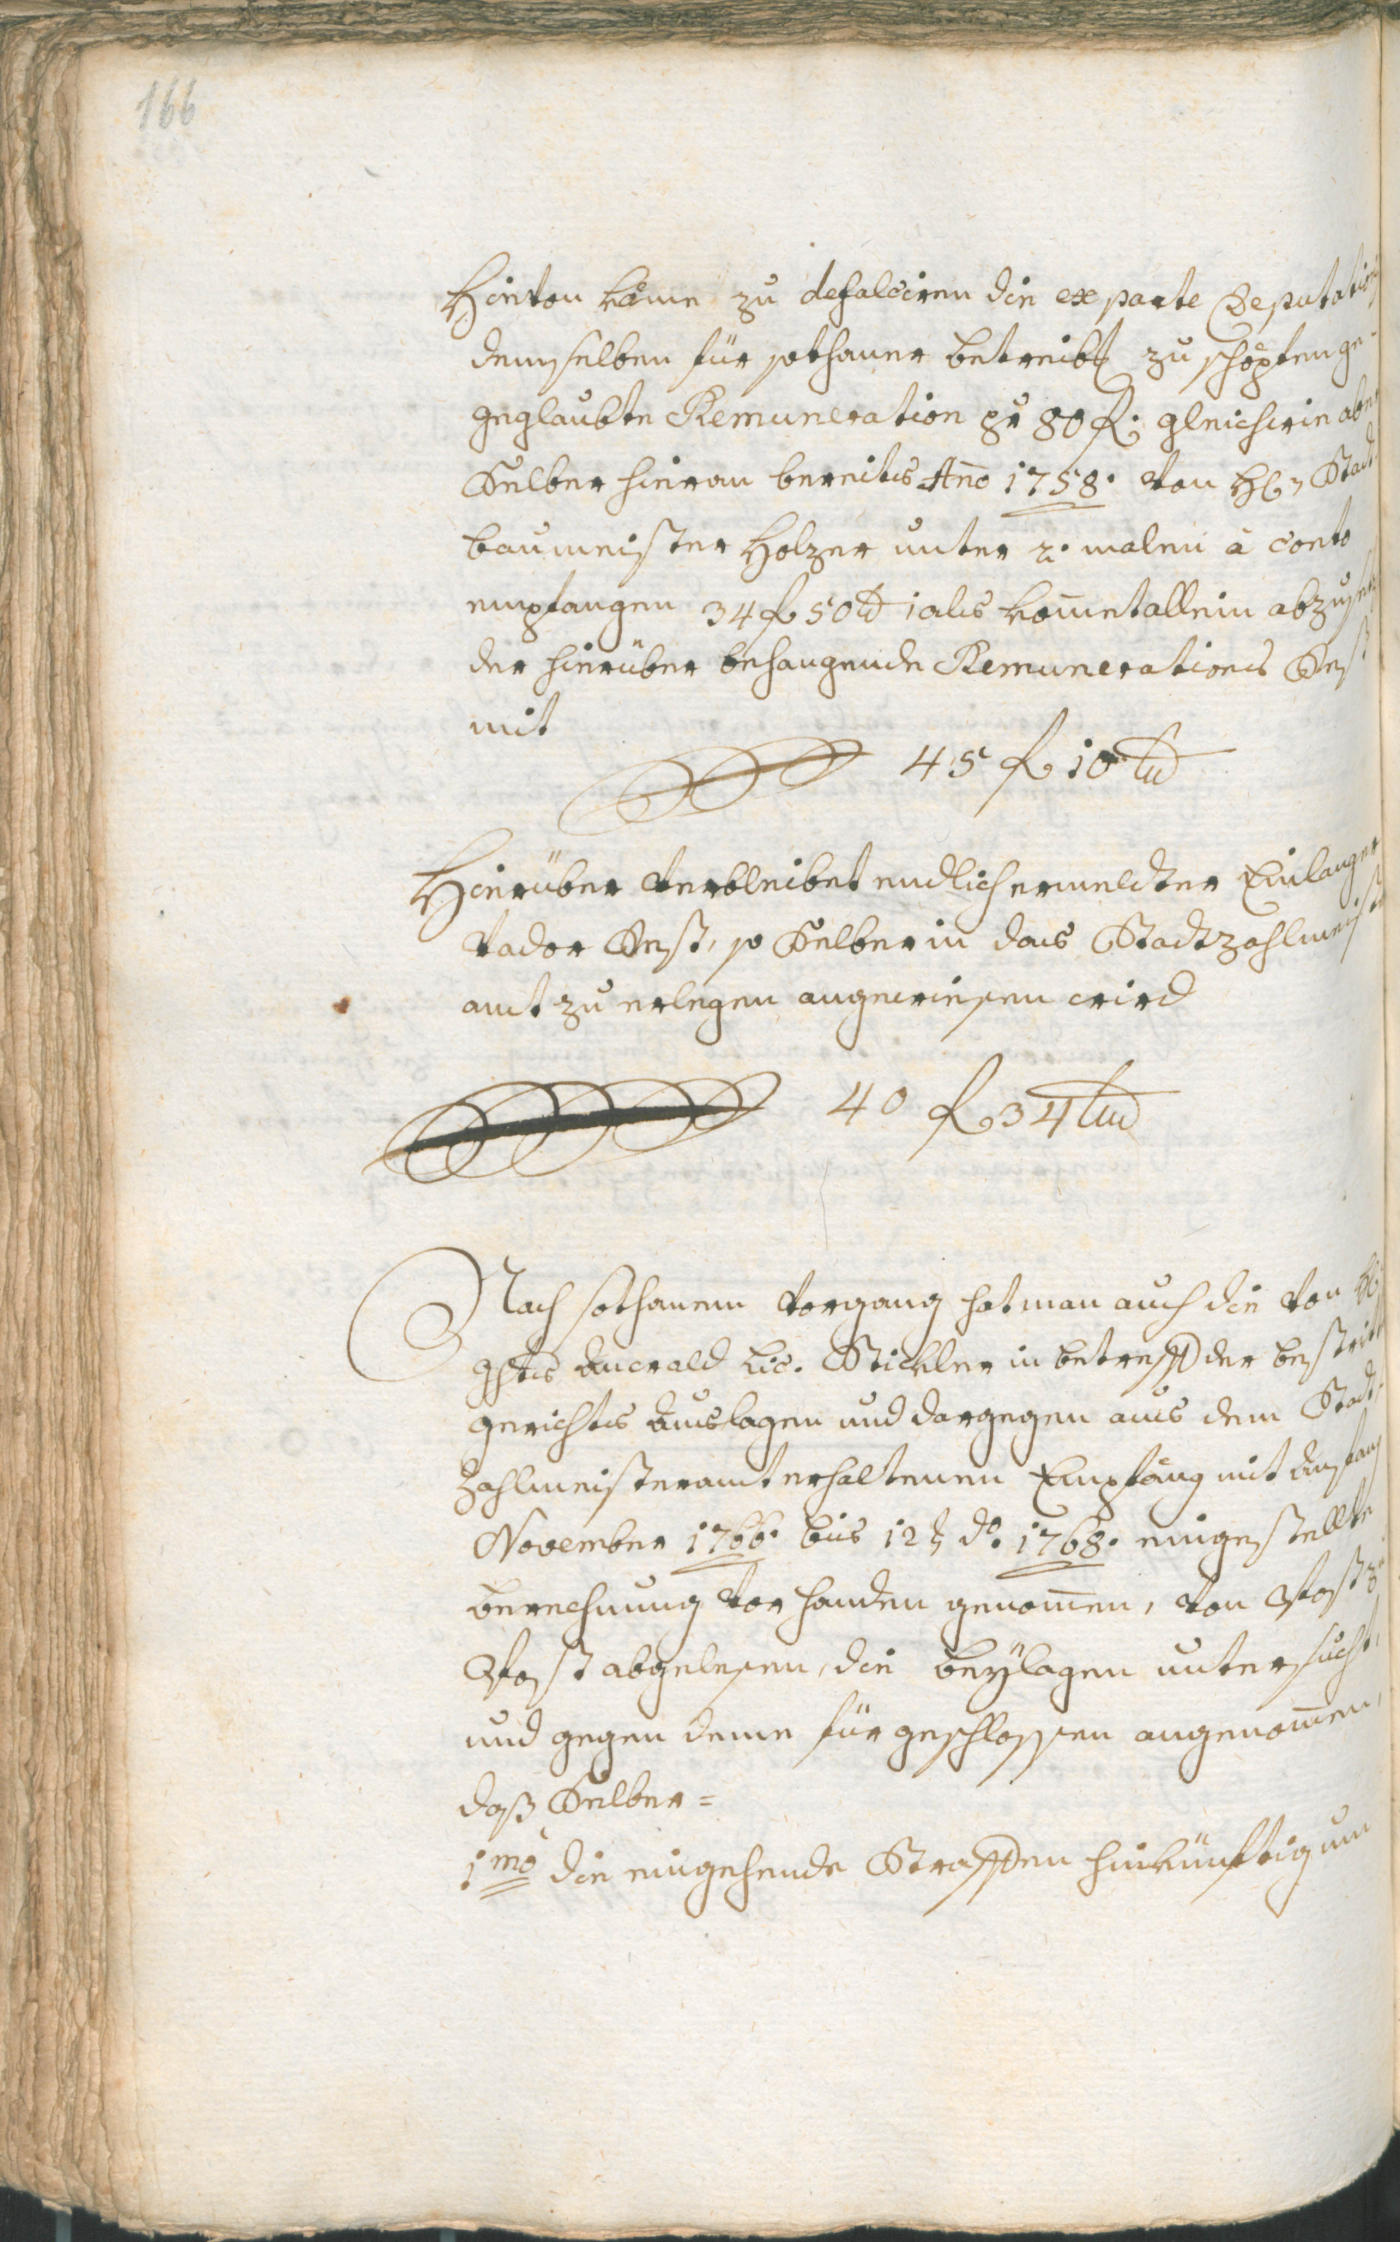 166
Hievon käme zu defalciren die ex parte Deputation
demselben für sothaner betreibt zu schöpfen ge-
geglaubte Remuneration pr 80 f: gleichwie aber
Selber hieran bereits Año 1758. von H: Stadt
baumeister Holzer unter 2. malen à conto
empfangen 34 f 50 als kom̄et allein abzusez
der hierüber behangende Remunerations Rest
mit
45 f 10
Hierüber verbleibet endlich ermeldter Einlanger
vador Rest, so Selber in das Stadtzahlmeister
amt zu erlegen angewiesen wird
40 f 34
Nach sothanem Vorgang hat man auch die von
Anwald Lic. Stickler in betreff der bestritt
gerichts Auslagen und dargegen aus dem Stadt-
zahlmeisteramt erhaltenen Empfang mit Anfang
November 1766. bis 12 do. 1768. eingestellte
berechnung vor handen genom̄en, von Post zu
Post abgelesen, die beÿlagen untersucht,
und gegen deme für geschlossen angenom̄en,
daß Selber =
1mo die eingehende Straffen hinkünftig um